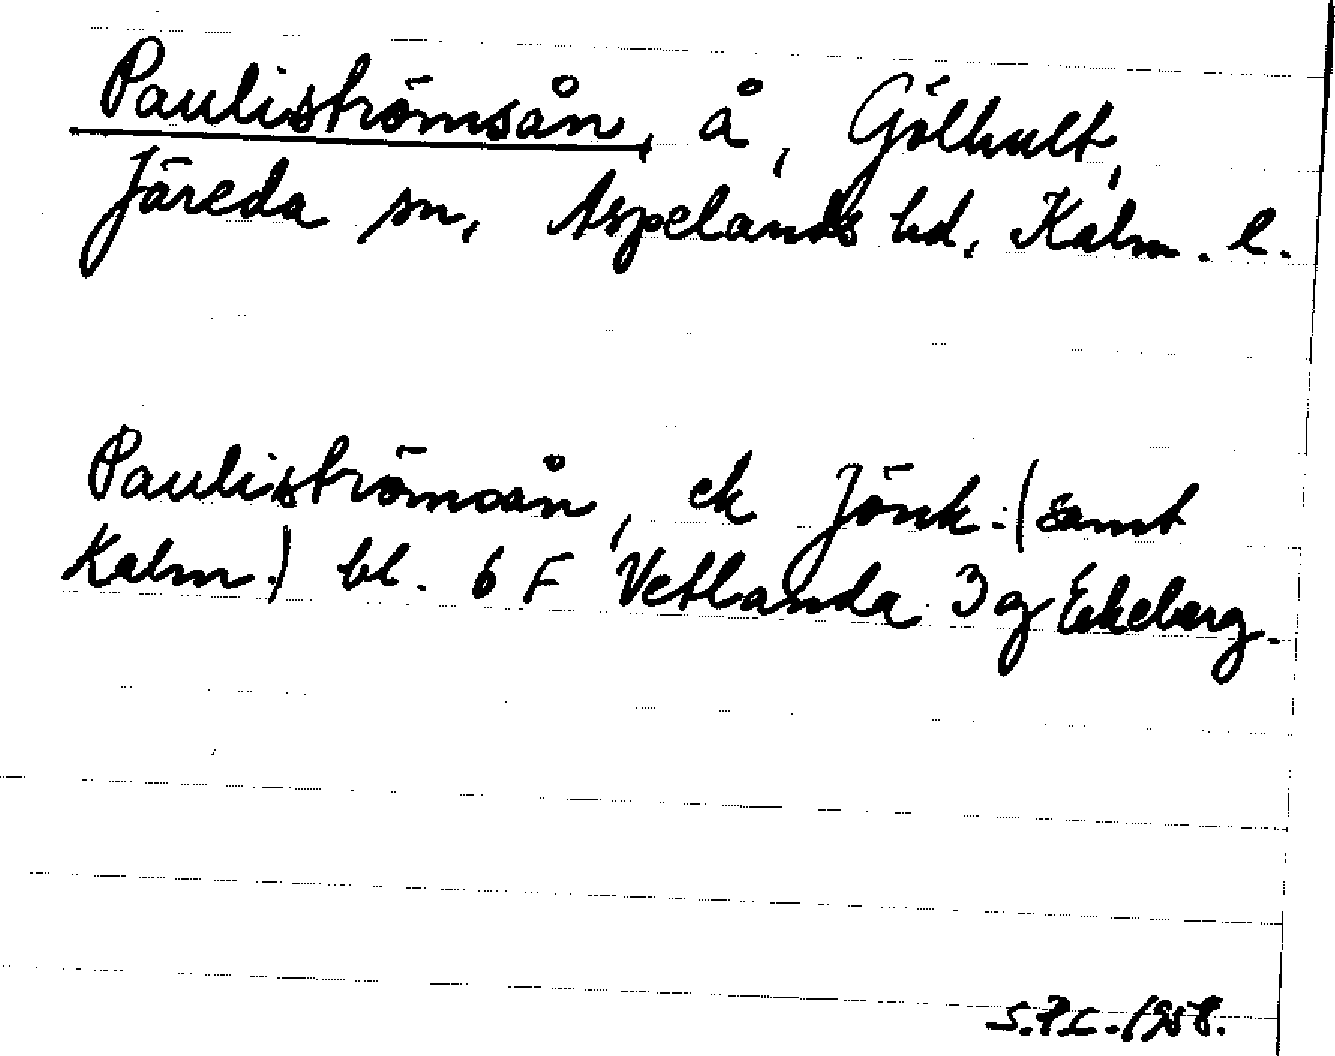 Pauliströmsån, å, Gölhult,
Järeda sn, Aspelands hd, Kalm. l.
Pauliströmsån, ek Jönk. (samt
Kalm.) bl. 6 F Vetlanda 3 g Ekeberg.
1958.